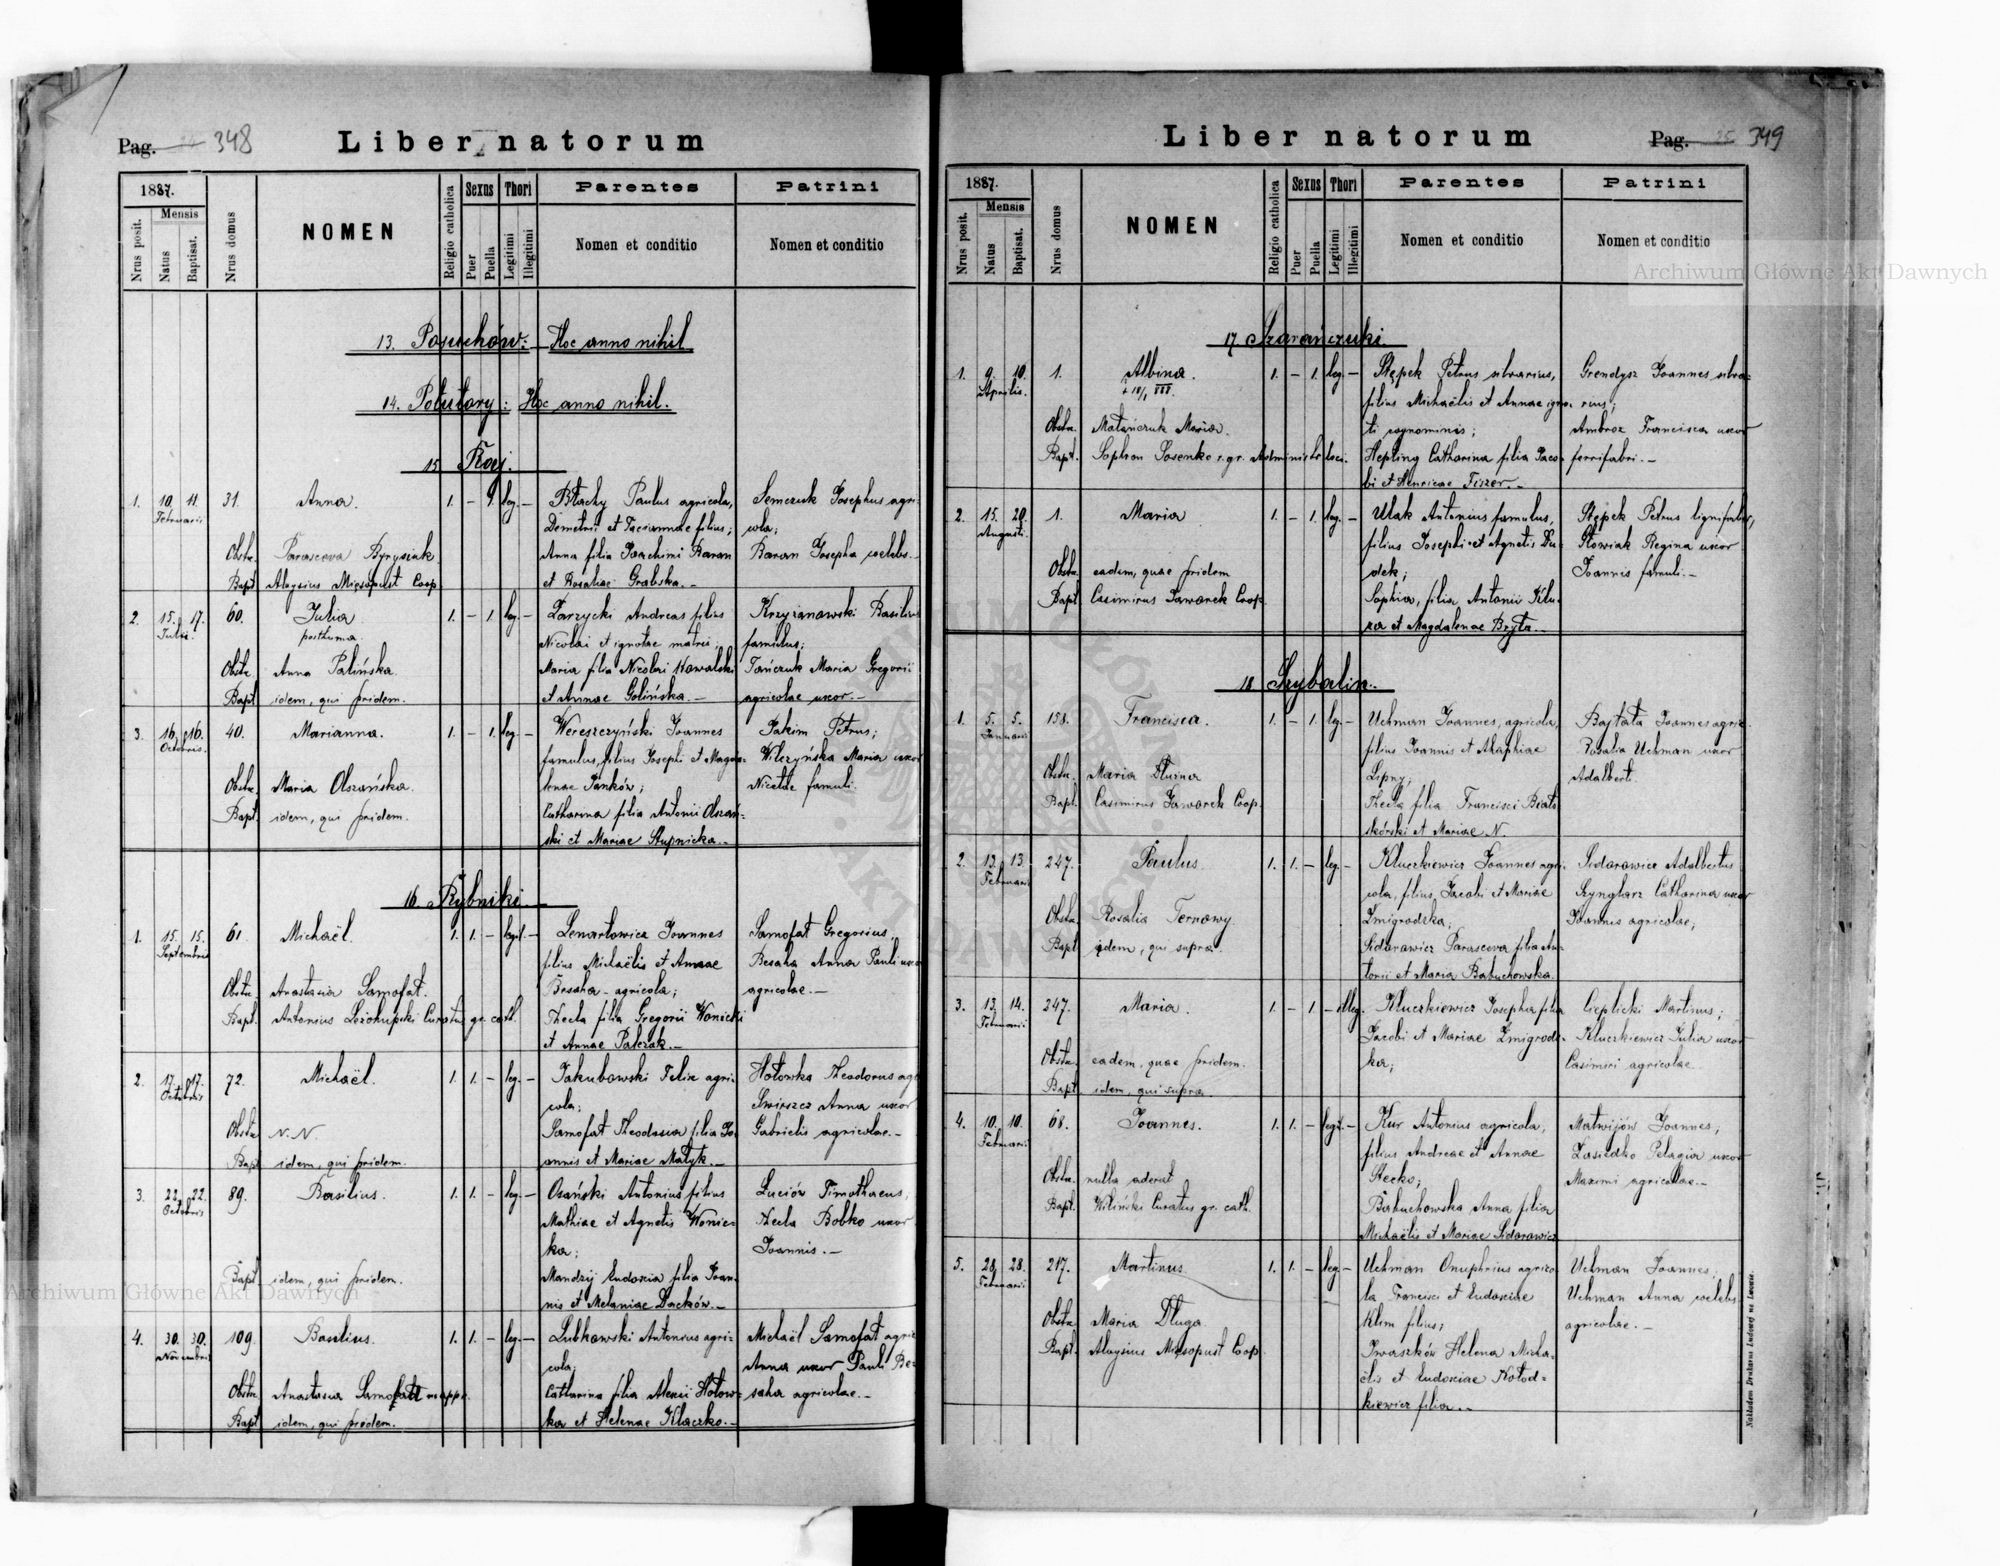 Pag. 348
Liber natorum
1887.
Mensis
Nrus posit.
Natus
Baptisat.
Nrus domus
NOMEN
Religio catholica
Sexus
Puer
Puella
Thori
Legitimi
Illegitimi
Parentes
Nomen et conditio
Patrini
Nomen et conditio
13. Posuchów: Hoc anno nihil
14. Potutory: Hoc anno nihil.
15 Raj.
1. 10. 11. 31. Anna. 1. – 1. leg. – Błachy Paulus agricola, Semczuk Josephus agri-
Februarii Demetrii et Taciannae filius; cola;
Obstr. Parasceva Byrysiuk Anna filia Joachimi Baran Baran Josepha coelebs.
Bapt. Aloysius Mięsopust Coop. et Rosaliae Grabska.–
2. 15. 17. 60. Julia 1. – 1. leg. – Zarzycki Andreas filius Krzyżanowski Basilius
Julii. posthuma. Nicolai et ignotae matris; famulus;
Obstr. Anna Palińska. Maria filia Nicolai Kowalski Tańczuk Maria Gregorii
Bapt. idem, qui pridem. et Annae Golińska.– agricolae uxor.–
3. 16. 16. 40. Marianna. 1. – 1. leg. – Wereszczyński Joannes Jakim Petrus;
Octobris. famulus, filius Josephi et Magda- Wilczyńska Maria uxor
Obstr. Maria Olszańska. lenae Janków; Nicetae famuli.
Bapt. idem, qui pridem. Catharina filia Antonii Olszań-
ski et Mariae Stupnicka.–
16. Rybniki.
1. 15. 15. 61. Michaël. 1. 1. – legit. – Lenartowicz Joannes Samofat Gregorius.
Septembris filius Michaëlis et Annae Besaha Anna Pauli uxor
Obstr. Anastasia Samofat. Besaha – agricola; agricolae.–
Bapt. Antonius Curatus gr. cath. Thecla filia Gregorii Wonicki
et Annae Palczak.–
2. 17. 17. 72. Michaël. 1. 1. – leg. – Jakubowski Felix agri- Hołowka Theodorus agr
Octobris cola; Swirszcz Anna uxor
Obstr. N. N. Samofat Theodosia filia Jo- Gabrielis agricolae.–
Bapt. idem, qui pridem. annis et Mariae Matyk.–
3. 22. 22. 89. Basilius. 1. 1. – leg. – Osański Antonius filius Luciów Timothaeus,
Octobris Mathiae et Agnetis Wonic- Thecla Bobko uxor
ka; Joannis.–
Bapt. idem, qui pridem. Mandzij Eudoxia filia Joan-
nis et Melaniae Dacków.–
4. 30. 30. 109. Basilius. 1. 1. – leg. – Lubkowski Antonius agri- Michaël Samofat agric
Novembris cola; Anna uxor Pauli Be-
Obstr. Anastasia Samofat Catharina filia Alexii Hołow- saha agricolae.–
Bapt. idem, qui pridem. ka et Helenae Klaczko.–
Liber natorum
Pag. 25 349
1887.
Mensis
Nrus posit.
Natus
Baptisat.
Nrus domus
NOMEN
Religio catholica
Sexus
Puer
Puella
Thori
Legitimi
Illegitimi
Parentes
Nomen et conditio
Patrini
Nomen et conditio
17. Szarańczuki.
1. 9. 10. 1. Albina. 1. – 1. leg. – Stępek Petrus silvarius, Grendysz Joannes silva-
Aprilis. filius Michaëlis et Annae igno- rius;
Obstr. Matańczuk Maria. ti cognominis; Ambroz Francisca uxor
Bapt. Sophron Sosenko r. gr. Administr. loci. Hepling Catharina filia Jaco- ferrifabri.–
bi et Henricae Fiszer.–
2. 15. 20. 1. Maria 1. – 1. leg. – Ulak Antonius famulus, Stępek Petrus lignifaber,
Augusti filius Josephi et Agnetis Du- Słowiak Regina uxor
Obstr. eadem, quae pridem dek; Joannis famuli.–
Bapt. Casimirus Jaworek Coop. Sophia, filia Antonii Klu-
za et Magdalenae Bryta.–
18 Szybalin.
1. 5. 5. 158. Francisca. 1. – 1. leg. – Uchman Joannes, agricola, Bajtała Joannes agric.
Januarii filius Joannis et Ahaphiae Rosalia Uchman uxor
Obstr. Maria Dłużna Lipny; Adalberti.
Bapt. Casimirus Jaworek Coop. Thecla filia Francisci Biało-
skórski et Mariae N.
2. 13. 13. 247. Paulus. 1. 1. – leg. – Kluczkiewicz Joannes agri- Sidorowicz Adalbertus
Februarii cola, filius Jacobi et Mariae Szynglarz Catharina uxor
Obstr. Rosalia Ternawy. Żmigrodzka; Joannis agricolae;
Bapt. idem, qui supra. Sidorowicz Parasceva filia An-
tonii et Maria Babuchowska.
3. 13. 14. 247. Maria. 1. – 1. – illeg. Kluczkiewicz Josepha filia Cieplicki Martinus;
Februarii Jacobi et Mariae Żmigrodz- Kluczkiewicz Julia uxor
Obstr. eadem, quae pridem. ka; Casimiri agricolae.
Bapt. idem, qui supra.
4. 10. 10. 68. Joannes. 1. 1. – legit. – Kur Antonius agricola, Matwijów Joannes,
Februarii filius Andreae et Annae Zasiedko Pelagia uxor
Obstr. nulla aderat Stecko; Maximi agricolae.–
Bapt. Wiliński Curatus gr. cath. Babuchowska Anna filia
Michaëlis et Mariae Sidorowicz
5. 28. 28. 217. Martinus. 1. 1. – leg. – Uchman Onuphrius agrico- Uchman Joannes,
Februarii la Francisci et Eudoxiae Uchman Anna coelebs
Obstr. Maria Długa. Klim filius; agricolae.–
Bapt. Aloysius Mięsopust Coop. Iwaszków Helena Micha-
ëlis et Eudoxiae Kołod-
kiewicz filia.–
Nakładem Drukarni Ludowej we Lwowie.
Archiwum Główne Akt Dawnych
Archiwum Główne Akt Dawnych